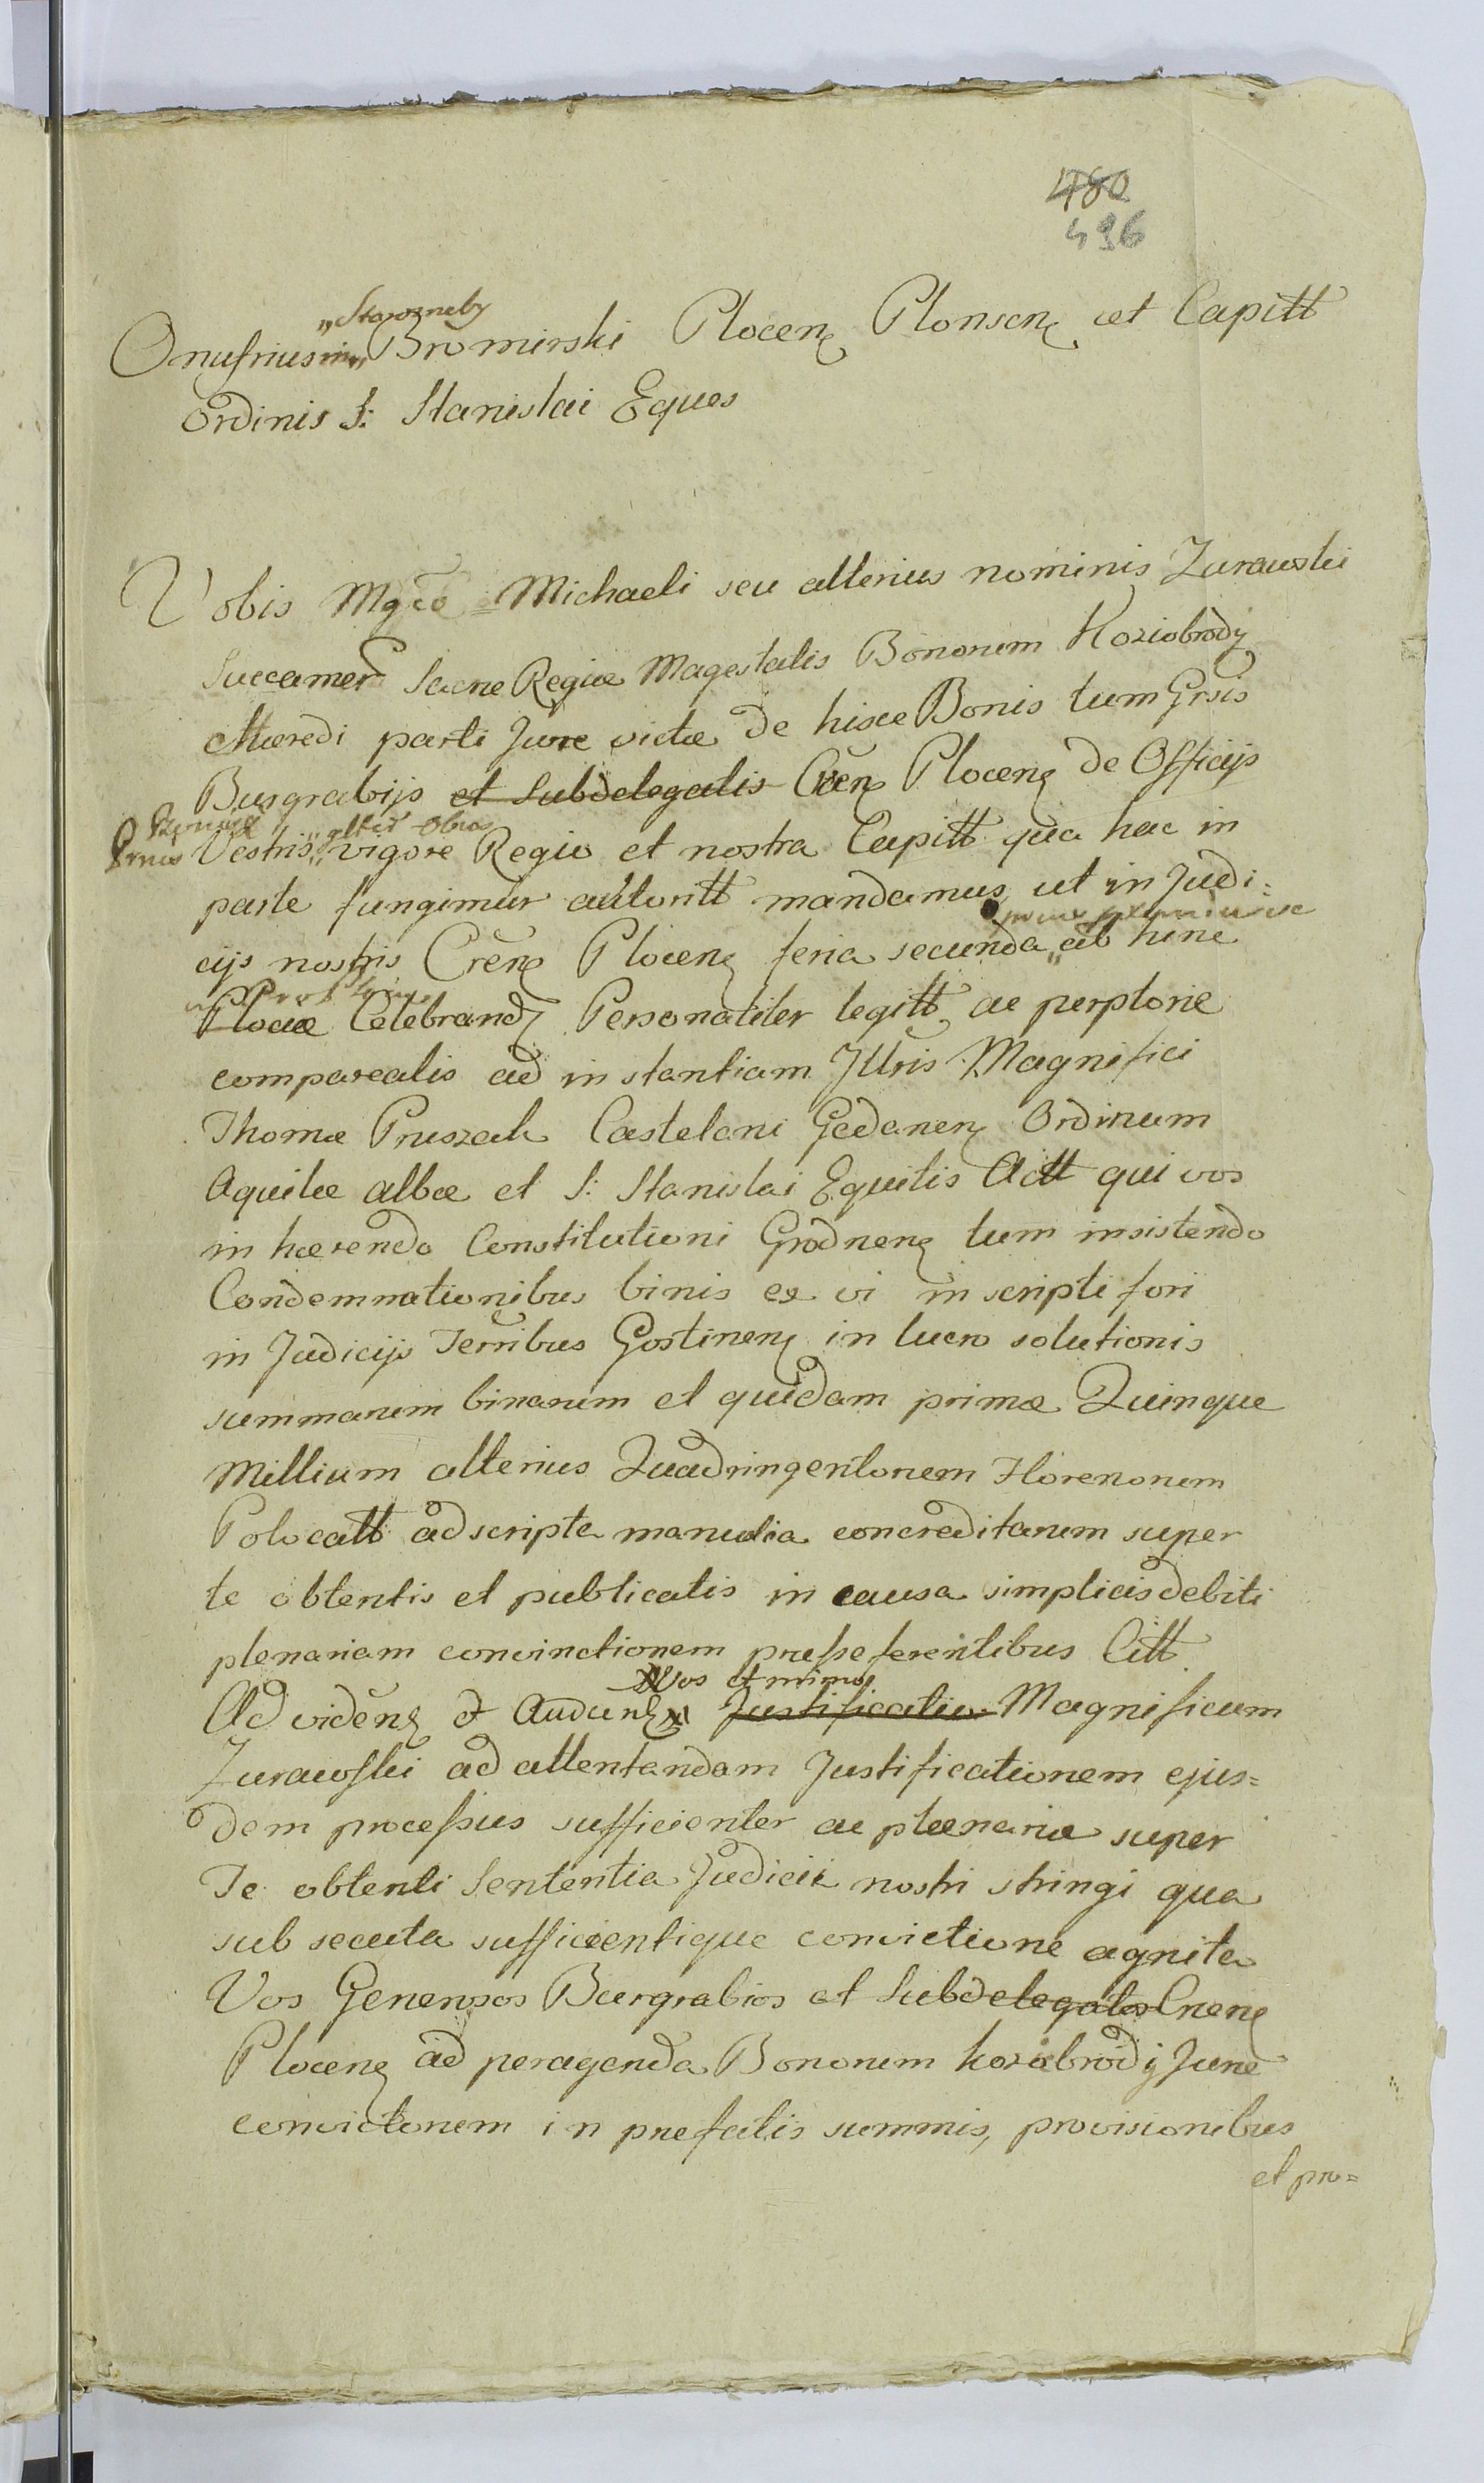 480
496
Onufrius Bromirski Plocen Plonscn et Capitt
Ordinis S: Stanislai Eques
Vobis Mgco Michaeli seu alterius nominis Zurawski
Succamer Sacrae Regiae Magestatis Bonorum Koziobrody
Haeredi parti Jure victae de hisce Bonis tum Grsis
Burgrabijs et Subdelegatis Cren Plocen de Officijs
Vestris vigore Regia et nostra Capitt qua hac in
parte fungimur authoritt mandamus ut in Judi:
cijs nostris Cren Plocen feria secunda ab hinc
Plocae Celebrand Personaliter legitt ac perptorie
compareatis ad instantiam Jllris Magnifici
Thomae Pruszak Castelani Gedanen Ordinum
Aquilae albae et S: Stanislai Equitis Actt qui vos
in haerendo Constitutioni Grodnen tum insistendo
Condemnationibus binis ex vi inscripti fori
in Judicijs Terribus Gostinen in lucro solutionis
summarum binarum et quidam primae Quinque
Millium alterius Quadringentorum Florenorum
Polocatt ad scripta manualia concreditarum super
te obtentis et publicatis in causa simplicis debiti
plenariam convinctionem praeseferentibus Citt
Vos et nimo
Ad viden & Audien Justificatio Magnificum
Zurawski ad attentandam Justificationem ejus=
dem processus sufficienter ac plaenarie super
Te obtenti Sententia Judicii nostri stringi qua
sub secuta sufficientique convictione agnita
Vos Generosos Burgrabios et Subdelegatos Cren
Plocen ad peragenda Bonorum koziobrody Jure
convictorum in prefatis summis, provisionibus
et pro=